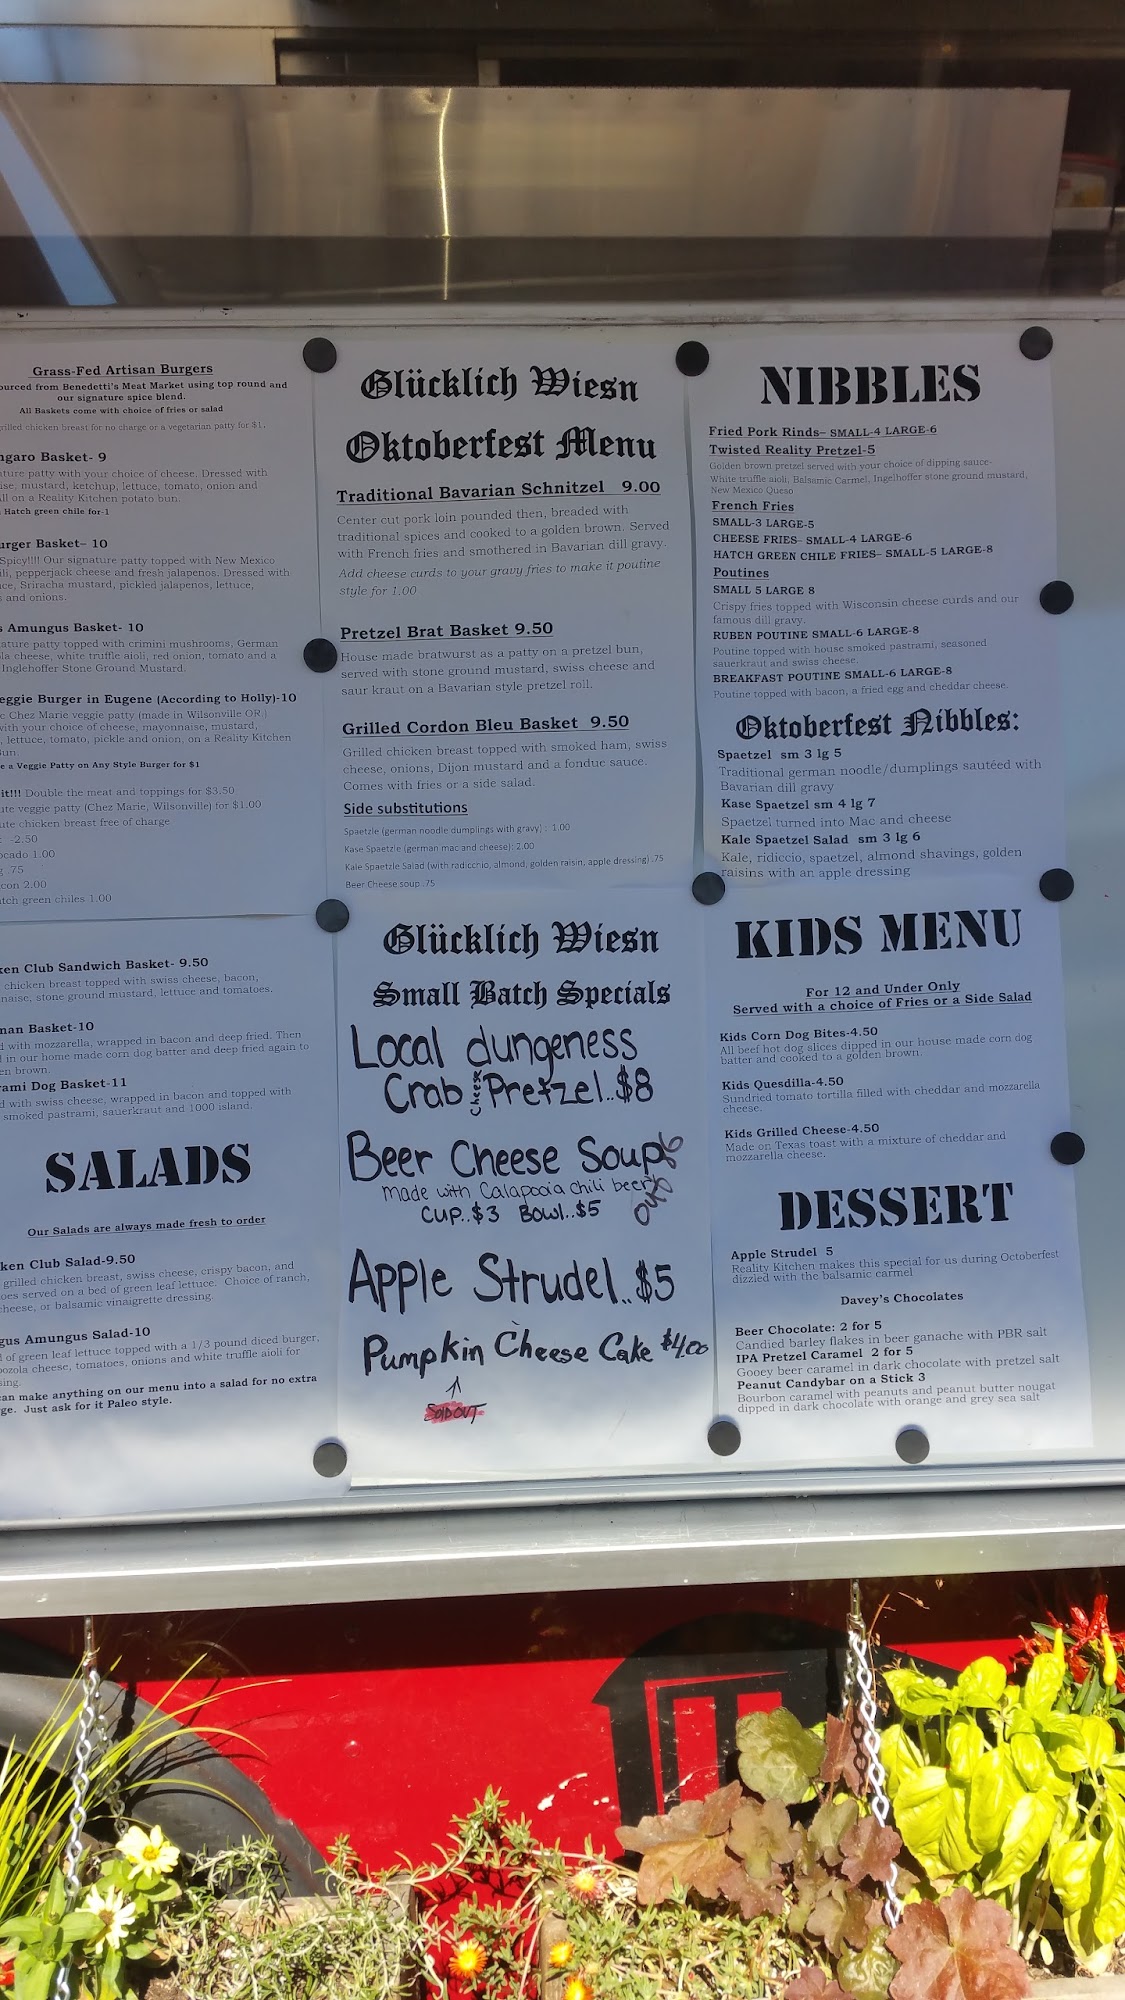 Grass-Fed Artisan Burgers
ourced from Benedetti's Meat Market using top round and
our signature spice blend.
All Baskets come with choice of fries or salad
rilled chicken breast for no charge or a vegetarian patty for $1.
ngaro Basket- 9
ture patty with your choice of cheese. Dressed with
ise, mustard, ketchup, lettuce, tomato, onion and
ll on a Reality Kitchen potato bun.
Hatch green chile for-1
urger Basket- 10
Spicy!!!! Our signature patty topped with New Mexico
ili, pepperjack cheese and fresh jalapenos. Dressed with
ce, Sriracha mustard, pickled jalapenos, lettuce,
s and onions.
s Amungus Basket- 10
ature patty topped with crimini mushrooms, German
la cheese, white truffle aioli, red onion, tomato and a
Inglehoffer Stone Ground Mustard.
eggie Burger in Eugene (According to Holly)-10
e Chez Marie veggie patty (made in Wilsonville OR.)
with your choice of cheese, mayonnaise, mustard,
, lettuce, tomato, pickle and onion, on a Reality Kitchen
Bun.
e a Veggie Patty on Any Style Burger for $1
it!!! Double the meat and toppings for $3.50
ute veggie patty (Chez Marie, Wilsonville) for $1.00
ute chicken breast free of charge
: -2.50
ocado 1.00
g .75
con 2.00
atch green chiles 1.00
ken Club Sandwich Basket- 9.50
chicken breast topped with swiss cheese, bacon,
naise, stone ground mustard, lettuce and tomatoes.
nan Basket-10
d with mozzarella, wrapped in bacon and deep fried. Then
d in our home made corn dog batter and deep fried again to
en brown.
rami Dog Basket-11
d with swiss cheese, wrapped in bacon and topped with
smoked pastrami, sauerkraut and 1000 island.
SALADS
Our Salads are always made fresh to order
ken Club Salad-9.50
grilled chicken breast, swiss cheese, crispy bacon, and
oes served on a bed of green leaf lettuce. Choice of ranch,
cheese, or balsamic vinaigrette dressing.
gus Amungus Salad-10
d of green leaf lettuce topped with a 1/3 pound diced burger,
ozola cheese, tomatoes, onions and white truffle aioli for
sing.
can make anything on our menu into a salad for no extra
ge. Just ask for it Paleo style.
Glücklich Wiesn
Oktoberfest Menu
Traditional Bavarian Schnitzel 9.00
Center cut pork loin pounded then, breaded with
traditional spices and cooked to a golden brown. Served
with French fries and smothered in Bavarian dill gravy.
Add cheese curds to your gravy fries to make it poutine
style for 1.00
Pretzel Brat Basket 9.50
House made bratwurst as a patty on a pretzel bun,
served with stone ground mustard, swiss cheese and
saur kraut on a Bavarian style pretzel roll.
Grilled Cordon Bleu Basket 9.50
Grilled chicken breast topped with smoked ham, swiss
cheese, onions, Dijon mustard and a fondue sauce.
Comes with fries or a side salad.
Side substitutions
Spaetzle (german noodle dumplings with gravy) : 1.00
Kase Spaetzle (german mac and cheese): 2.00
Kale Spaetzle Salad (with radicchio, almond, golden raisin, apple dressing) .75
Beer Cheese soup .75
Glücklich Wiesn
Small Batch Specials
Local dungeness
Crab Cheese Pretzel..$8
Beer Cheese Soup
made with Calapooia chili beer
Cup..$3 Bowl..$5
Apple Strudel..$5
Pumpkin Cheese Cake $4.00
SOLD OUT
NIBBLES
Fried Pork Rinds– SMALL-4 LARGE-6
Twisted Reality Pretzel-5
Golden brown pretzel served with your choice of dipping sauce-
White truffle aioli, Balsamic Carmel, Ingelhoffer stone ground mustard,
New Mexico Queso
French Fries
SMALL-3 LARGE-5
CHEESE FRIES– SMALL-4 LARGE-6
HATCH GREEN CHILE FRIES– SMALL-5 LARGE-8
Poutines
SMALL 5 LARGE 8
Crispy fries topped with Wisconsin cheese curds and our
famous dill gravy.
RUBEN POUTINE SMALL-6 LARGE-8
Poutine topped with house smoked pastrami, seasoned
sauerkraut and swiss cheese.
BREAKFAST POUTINE SMALL-6 LARGE-8
Poutine topped with bacon, a fried egg and cheddar cheese.
Oktoberfest Nibbles:
Spaetzel sm 3 lg 5
Traditional german noodle/dumplings sautéed with
Bavarian dill gravy
Kase Spaetzel sm 4 lg 7
Spaetzel turned into Mac and cheese
Kale Spaetzel Salad sm 3 lg 6
Kale, ridiccio, spaetzel, almond shavings, golden
raisins with an apple dressing
KIDS MENU
For 12 and Under Only
Served with a choice of Fries or a Side Salad
Kids Corn Dog Bites-4.50
All beef hot dog slices dipped in our house made corn dog
batter and cooked to a golden brown.
Kids Quesdilla-4.50
Sundried tomato tortilla filled with cheddar and mozzarella
cheese.
Kids Grilled Cheese-4.50
Made on Texas toast with a mixture of cheddar and
mozzarella cheese.
DESSERT
Apple Strudel 5
Reality Kitchen makes this special for us during Octoberfest
dizzled with the balsamic carmel
Davey's Chocolates
Beer Chocolate: 2 for 5
Candied barley flakes in beer ganache with PBR salt
IPA Pretzel Caramel 2 for 5
Gooey beer caramel in dark chocolate with pretzel salt
Peanut Candybar on a Stick 3
Bourbon caramel with peanuts and peanut butter nougat
dipped in dark chocolate with orange and grey sea salt